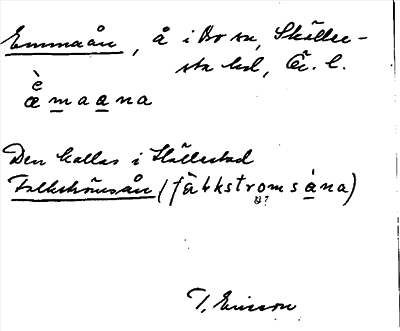 Emmaån, å i Bo sn, Skälle-
sta hd, Ör. l.
æ̀maana
Den kallas i Hällestad
Falkströmsån (fàlkstromsána)
T. Ericson